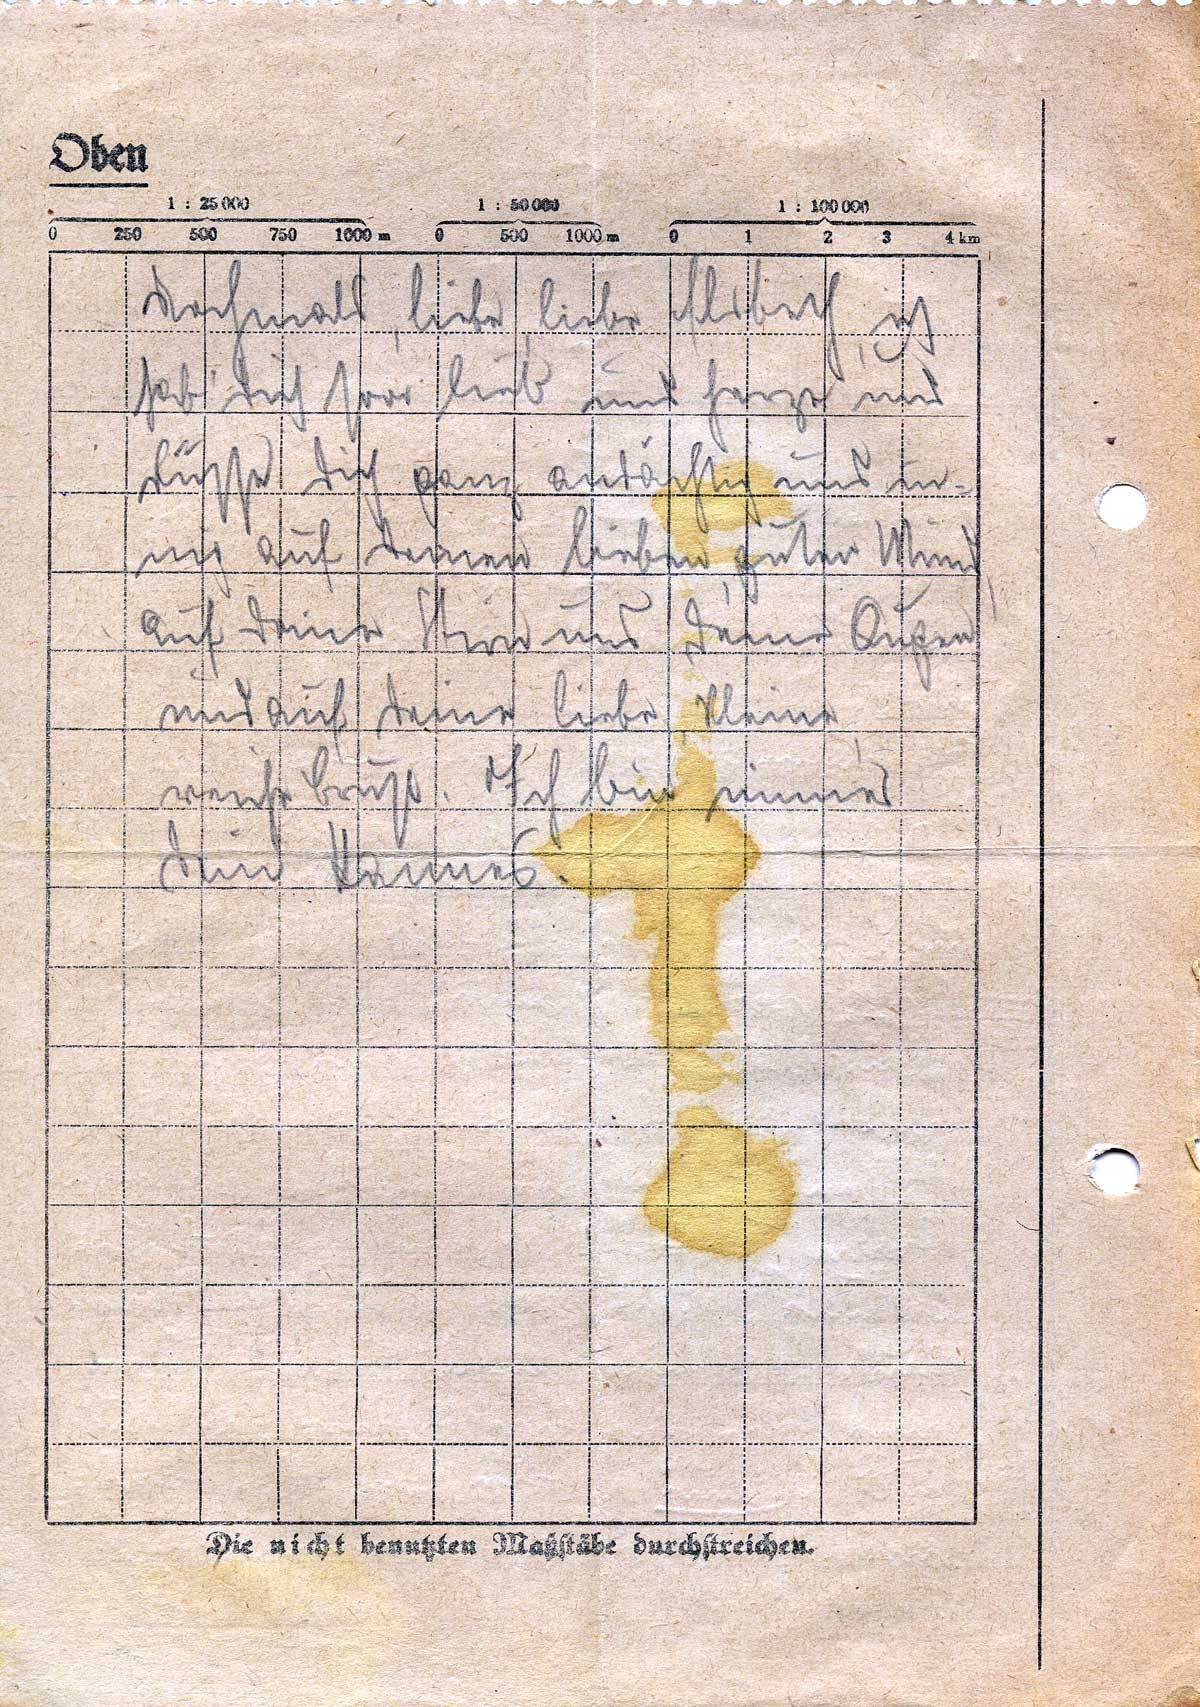 Oben
1 : 25 000 1 : 50 000 1 : 100 000
0 250 500 750 1000 m 0 500 1000 m 0 1 2 3 4 km
Nochmals, liebe, liebe Elsbeth, ich
hab' dich sehr lieb und herze und
küsse dich ganz andächtig und in-
nig auf deinen lieben, guten Mund,
auf deine Stirn und deine Augen
und auf deine liebe, kleine,
weiche Brust. Ich bin immer
dein Hannes.
Die nicht benutzten Maßstäbe durchstreichen.